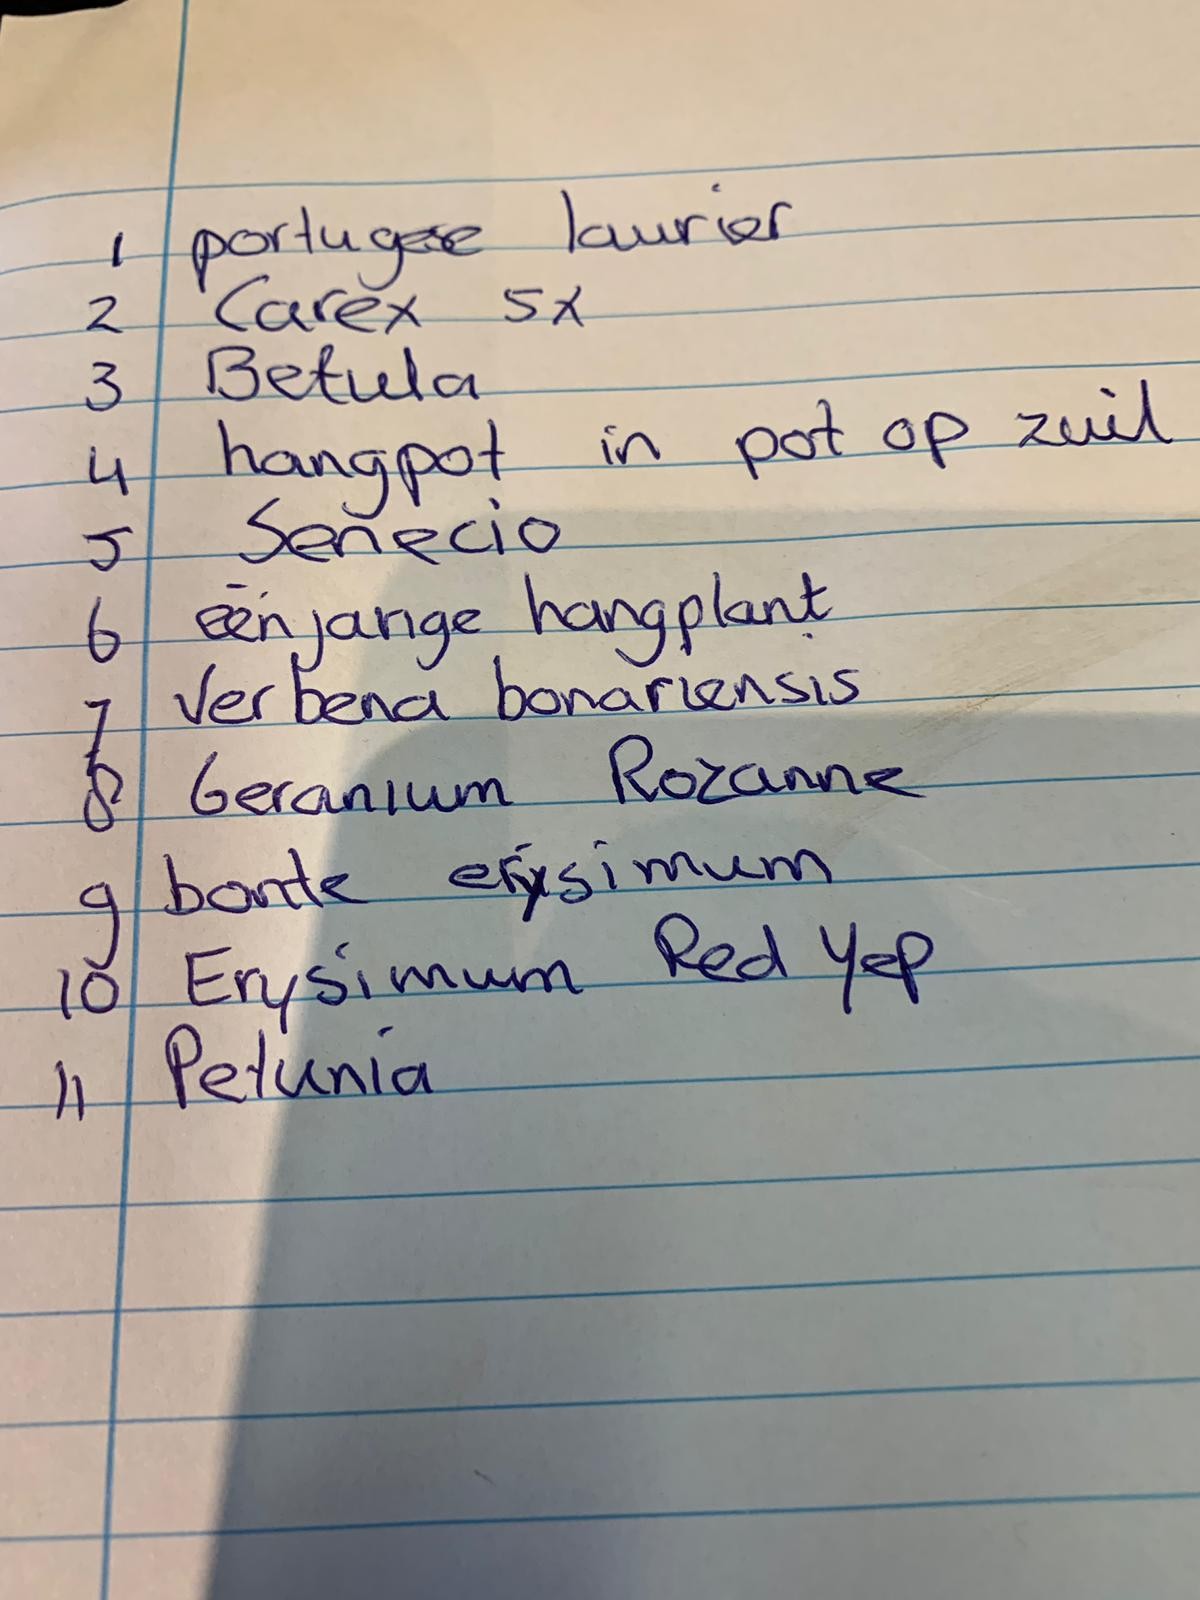 1 portugese laurier
2 Carex 5x
3 Betula
4 hangpot in pot op zuil
5 Senecio
6 éénjarige hangplant
7 Verbena bonariensis
8 Geranium Rozanne
9 bonte erysimum
10 Erysimum Red Yep
11 Petunia